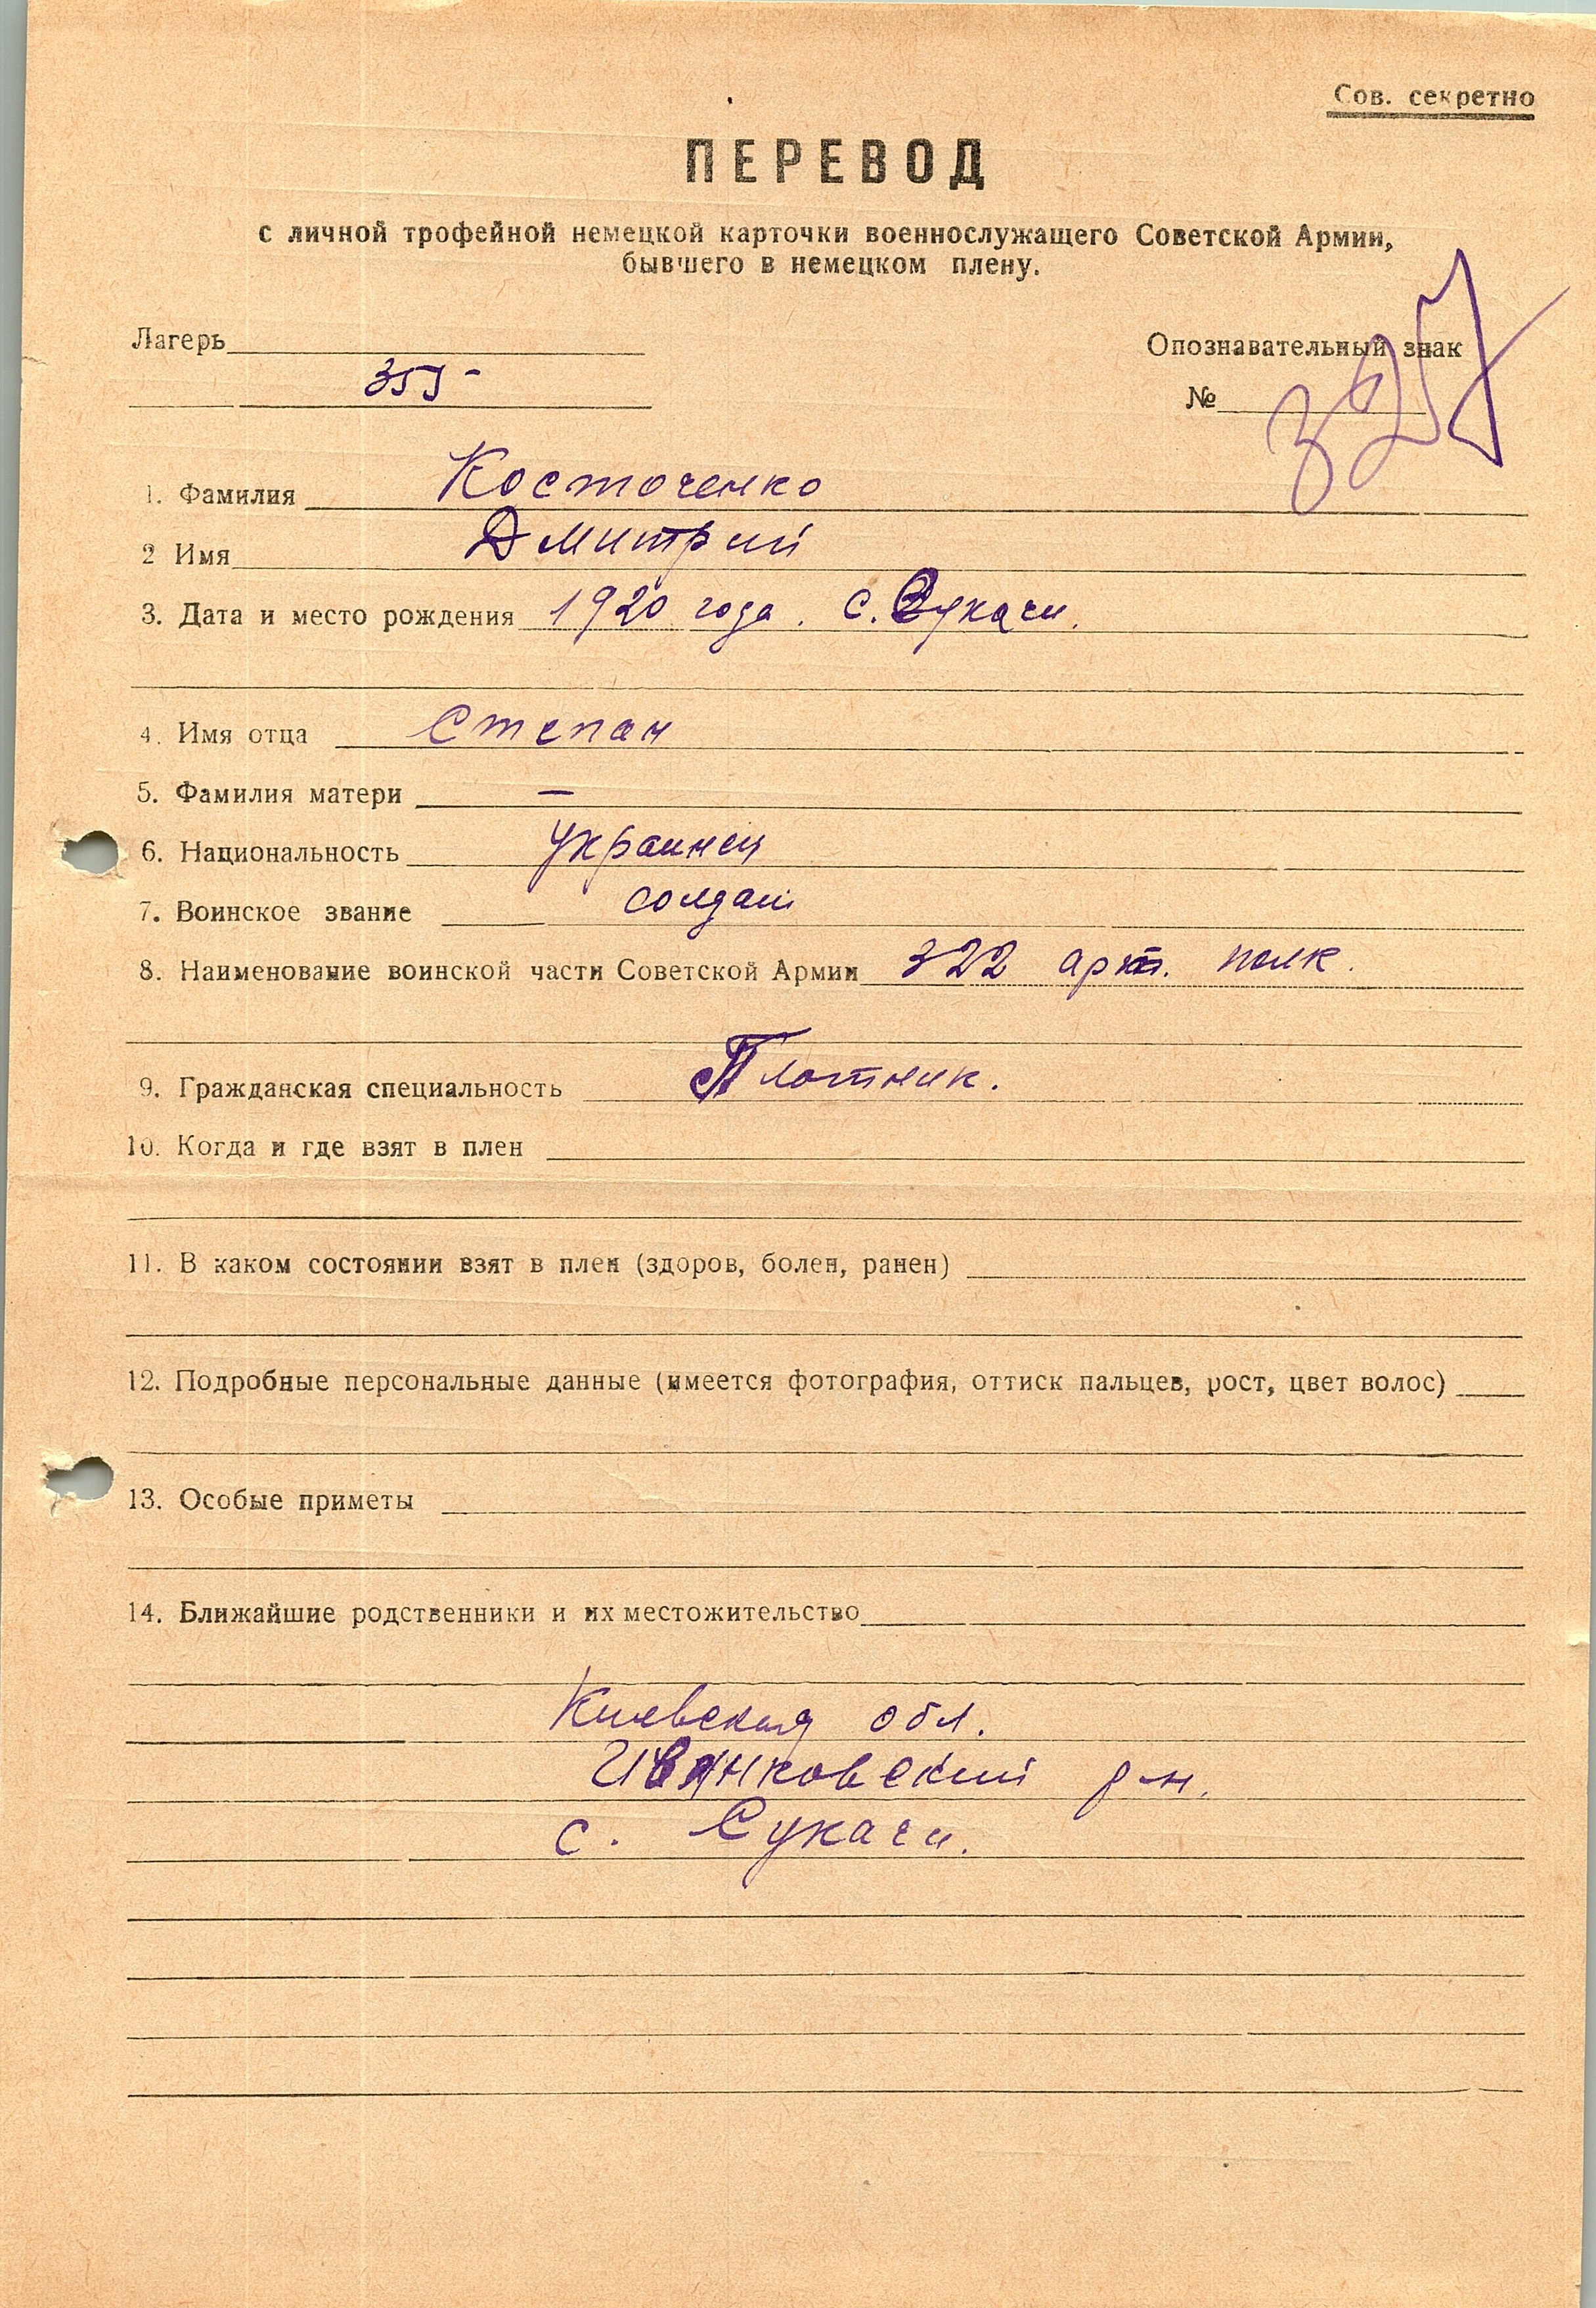 Сов. секретно
ПЕРЕВОД
с личной трофейной немецкой карточки военнослужащего Советской Армии,
бывшего в немецком плену.
Лагерь
355
Опознавательный знак
№
1. Фамилия Косточенко
2 Имя Дмитрий
3. Дата и место рождения 1920 года. с. Сукачи.
4. Имя отца Степан
5. Фамилия матери —
6. Национальность украинец
7. Воинское звание солдат
8. Наименование воинской части Советской Армии 322 арт. полк.
9. Гражданская специальность Плотник.
10. Когда и где взят в плен
11. В каком состоянии взят в плен (здоров, болен, ранен)
12. Подробные персональные данные (имеется фотография, оттиск пальцев, рост, цвет волос)
13. Особые приметы
14. Ближайшие родственники и их местожительство
Киевская обл.
Иванковский р-н.
с. Сукачи.